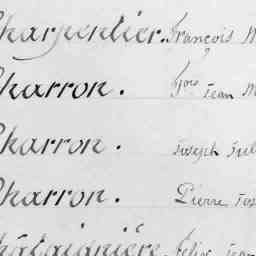 Charpentier. François M
Charron. Jean M
Charron. Joseph Jul
Charron. Pierre Jos
Châtaignière. Félix Jean